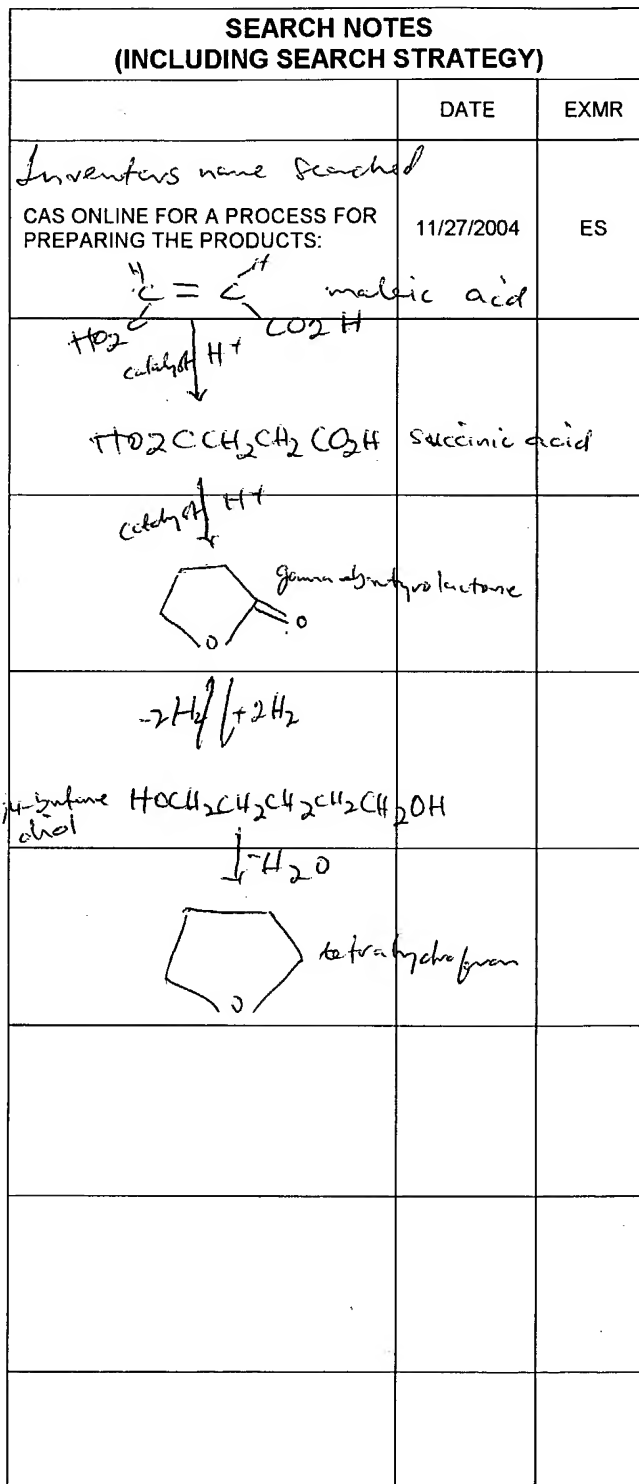 SEARCH NOTES
(INCLUDING SEARCH STRATEGY)
DATE EXMR
Inventors name Searched
CAS ONLINE FOR A PROCESS FOR
PREPARING THE PRODUCTS:
11/27/2004 ES
H H
C = C maleic acid
HO2C CO2H
catalyst H+
HO2CCH2CH2CO2H succinic acid
catalyst H+
gamma-butyrolactone
O
O
-2H2 +2H2
HOCH2CH2CH2CH2CH2OH
-H2O
tetrahydrofuran
O